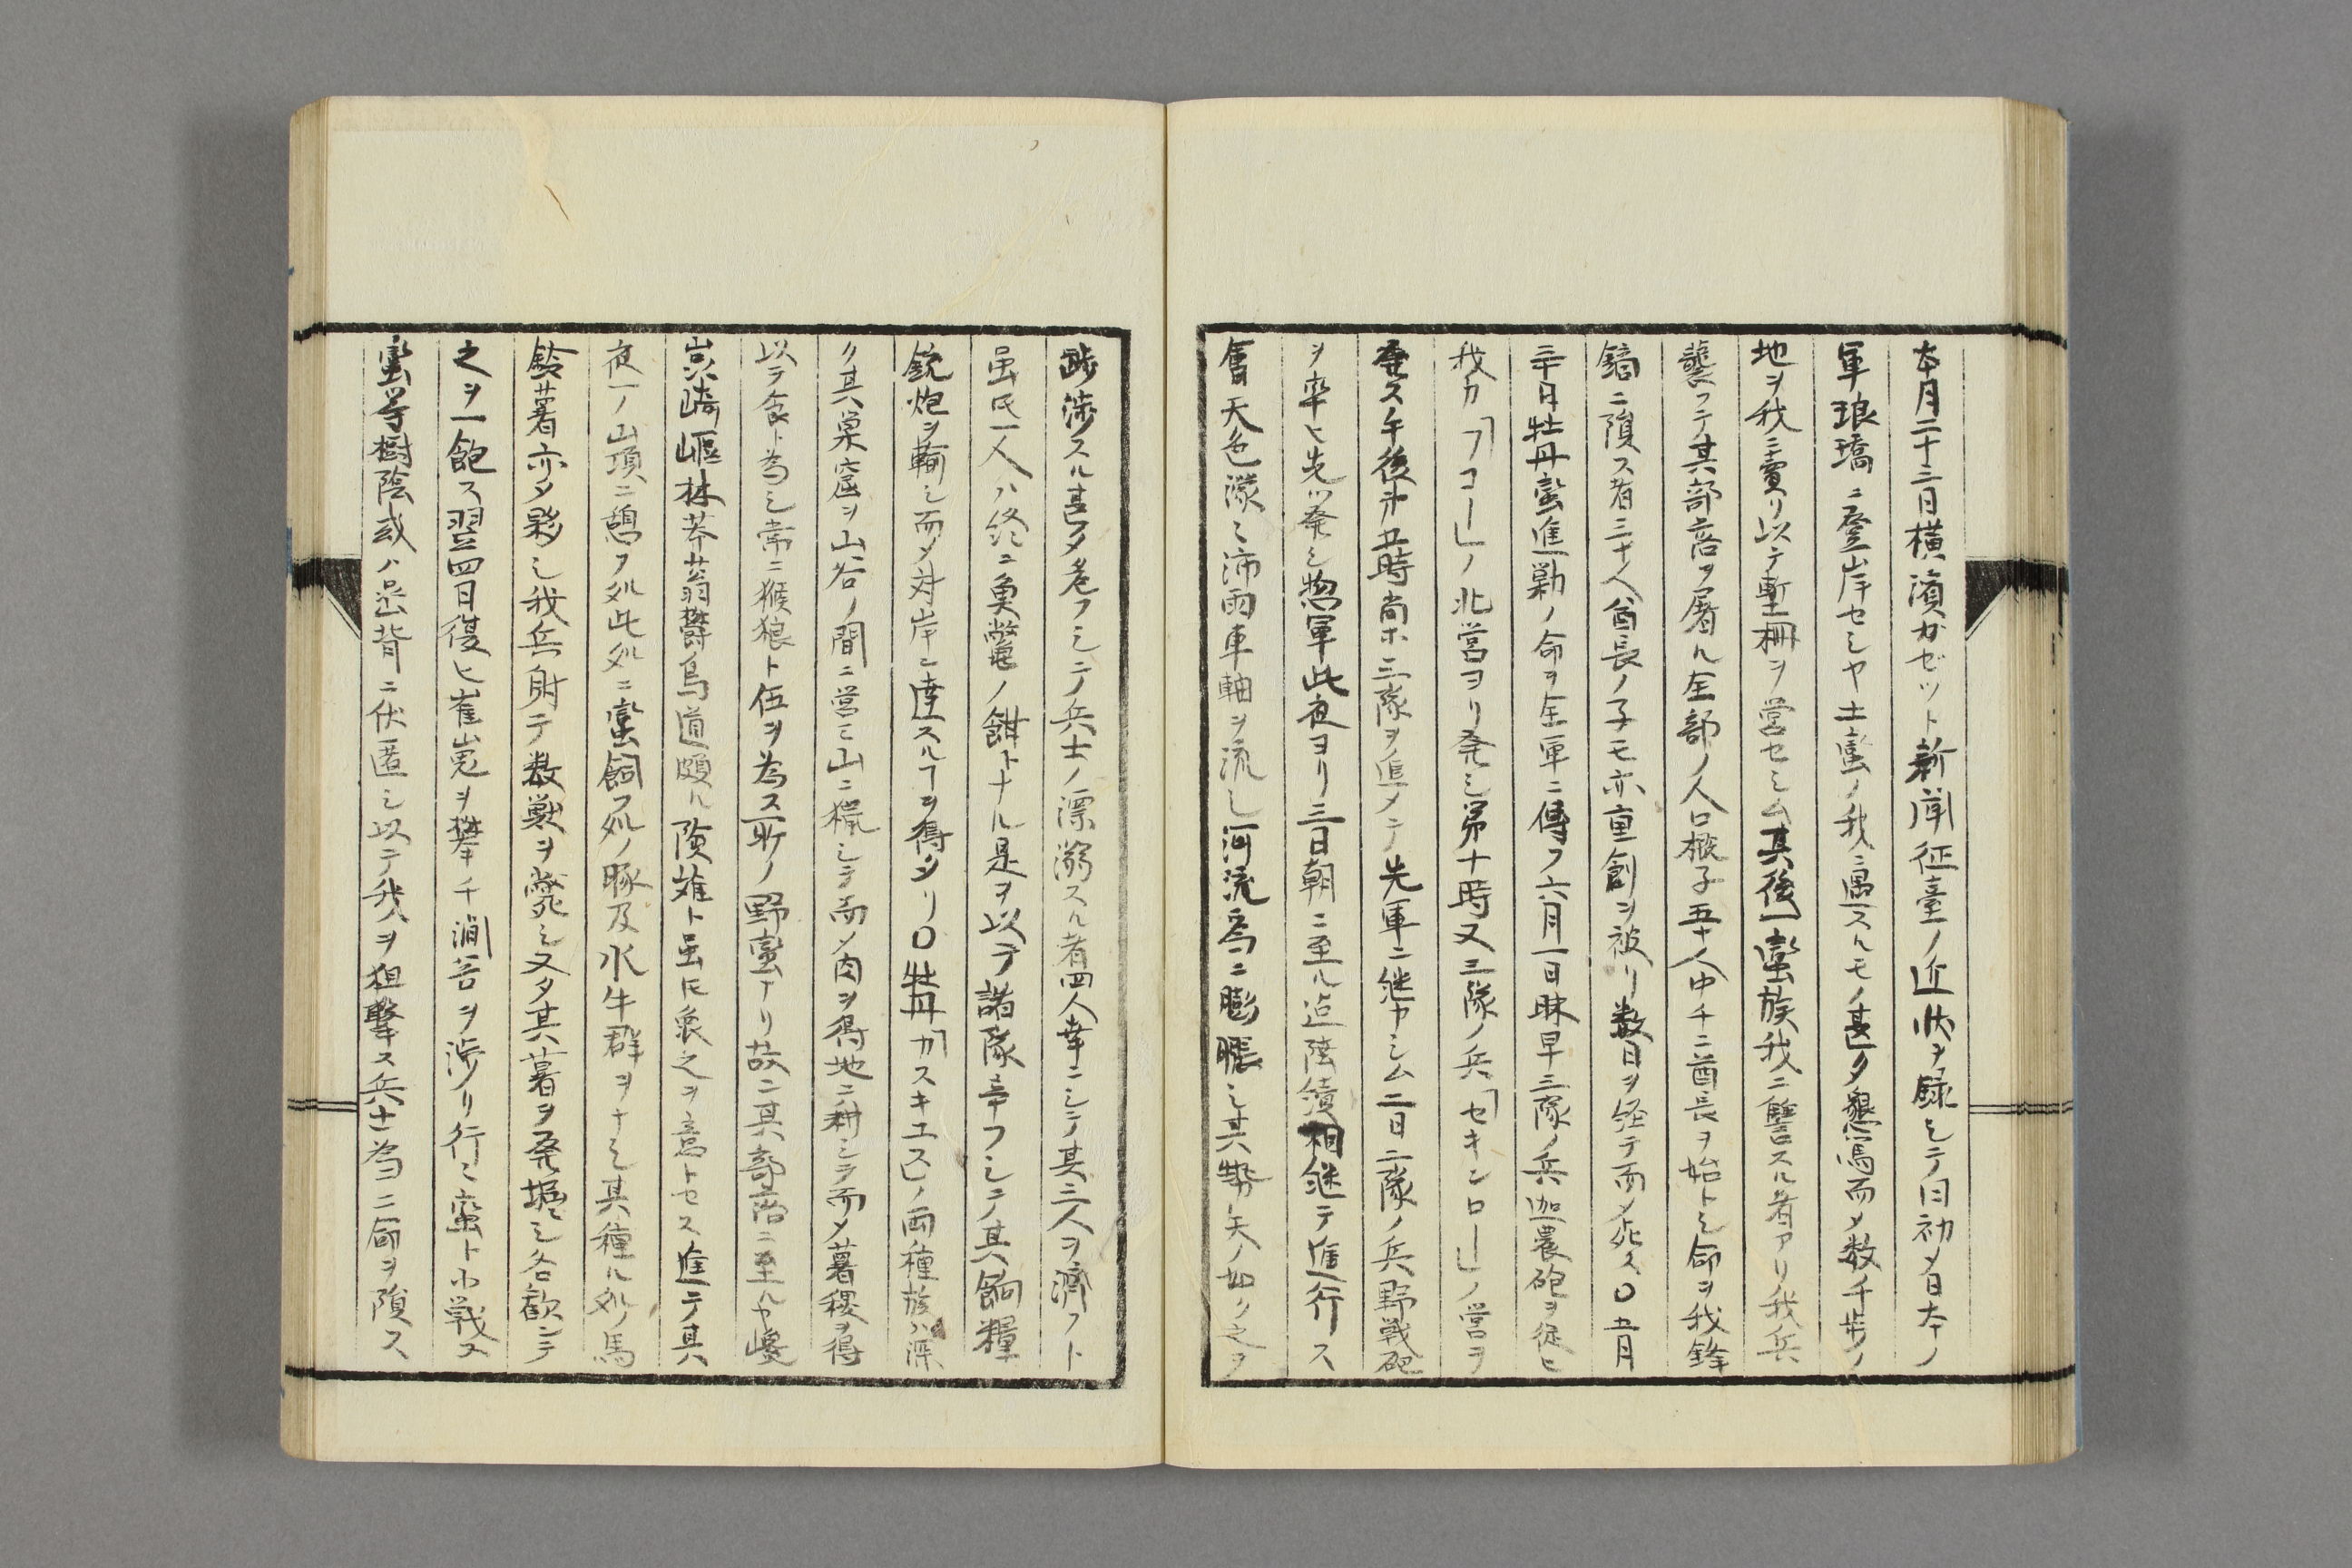 本月二十三日横濱ガゼット新聞征臺ノ近状ヲ録シテ曰初メ日本ノ
軍琅璚ニ登岸セシヤ土蛮ノ我ニ遇スルモノ甚タ懇篤而メ数千歩ノ
地ヲ我ニ賣リ以テ塹柵ヲ営セシム其後一蛮族我ニ讐スル者アリ我兵
襲フテ其部落ヲ屠ル全部ノ人口概子五十人中チニ酋長ヲ始トシ命ヲ我鋒
鏑ニ隕ス者三十人酋長ノ子モ亦重創ヲ被リ数日ヲ経テ而メ死ス〇五月
三十日牡丹蛮進勦ノ命ヲ全軍ニ傳フ六月一日昧早三隊ノ兵迦農砲ヲ従ヒ
我カ「フコー」ノ北営ヨリ発シ第十時又三隊ノ兵「セキンロー」ノ営ヲ
発ス午後第五時尚ホ二隊ヲ進メテ先軍ニ継カシム二日二隊ノ兵野戦砲
ヲ率ヒ先ツ発シ惣軍此夜ヨリ三日朝ニ至ル迄陸續相継テ進行ス
會天色濛々沛雨車軸ヲ流シ河流為ニ膨脹シ其勢矢ノ如ク之ヲ
跋渉スル甚タ危フシテ兵士ノ漂溺スル者四人幸ニシテ其三人ヲ濟フト
虽氏一人ハ終ニ魚鼈ノ餌トナル是ヲ以テ諸隊辛フシテ其餉糧
銃炮ヲ輸シ而メ対岸ニ達スルヿヲ得タリ〇牡丹「カスキユス」ノ両種族ハ深
ク其巣窟ヲ山谷ノ間ニ営ミ山ニ猟シテ而メ肉ヲ得地ニ耕シテ而メ薯稷ヲ得
以テ食ト為シ常ニ猴狼ト伍ヲ為ス所ノ野蛮ナリ故ニ其部落ニ至ルヤ巉
崇崎嶇林莽蓊欝鳥道頗ル険难ト虽氏衆之ヲ意トセス進テ其
夜一ノ山頂ニ憩フ処此処ニ蛮飼フ処ノ豚及水牛群ヲナシ其種ル処ノ馬
鈴薯亦タ夥シ我兵射テ数獣ヲ斃シ又タ其薯ヲ発掘シ各歓ンテ
之ヲ一飽ス翌四日復ヒ崔嵬ヲ攀チ澗谷ヲ渉リ行々蛮ト小戦ス
蛮等樹陰或ハ岩背ニ伏匿シ以テ我ヲ狙撃ス兵士為ニ命ヲ隕ス